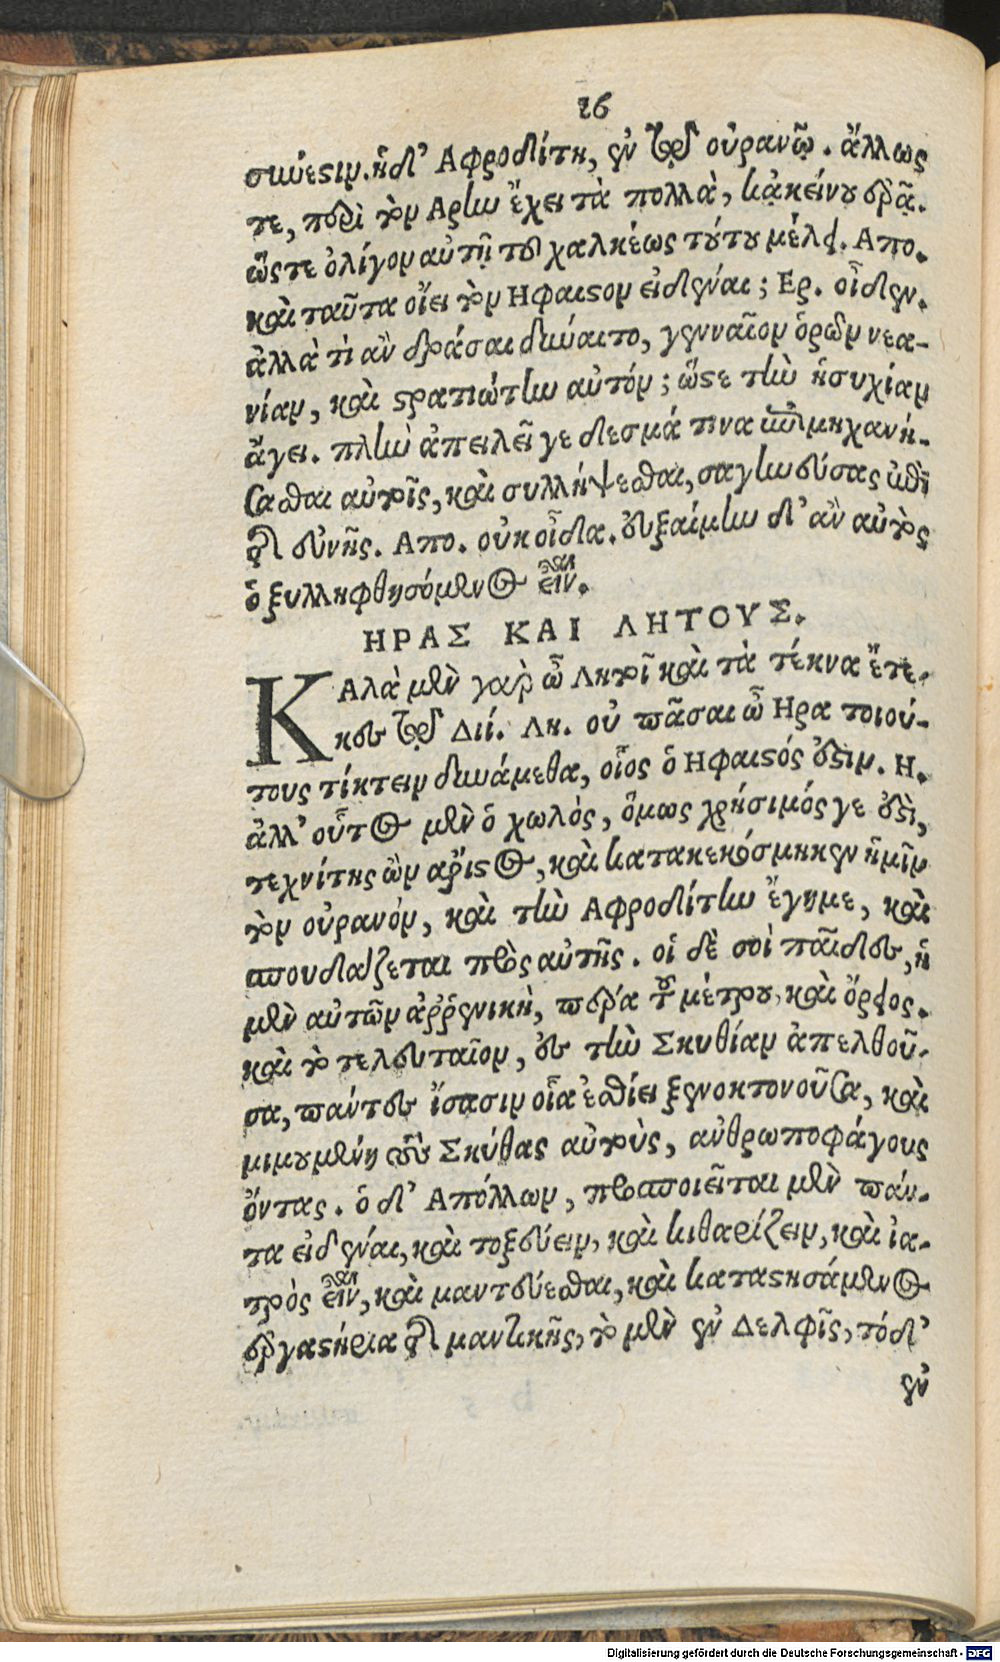 26
σύνεστιν. ἡ δ' Αφροδίτη, ἐν τῷ οὐρανῷ. ἄλλως
τε, περὶ τὸν Αρην ἔχει τὰ πολλὰ, κἀκείνου ἐρᾷ.
ὥστε ὀλίγον αὐτῇ τοῦ χαλκέως τούτου μέλει. Απο.
καὶ ταῦτα οἴει τὸν Ηφαιστον εἰδέναι; Ερ. οἶδεν.
ἀλλὰ τὶ ἂν δράσαι δύναιτο, γενναῖον ὁρῶν νεα-
νίαν, καὶ στρατιώτην αὐτόν; ὥστε τὴν ἡσυχίαν
ἄγει. πλὴν ἀπειλεῖ γε δεσμά τινα ἐπιμηχανή-
σασθαι αὐτοῖς, καὶ συλλήψεσθαι, σαγηνεύσας ἐπὶ
τῆς εὐνῆς. Απο. οὐκ οἶδα. εὐξαίμην δ' ἂν αὐτὸς
ὁ ξυλληφθησόμενος εἶναι.
ΗΡΑΣ ΚΑΙ ΛΗΤΟΥΣ.
ΚΑλὰ μὲν γὰρ ὦ Λητοῖ καὶ τὰ τέκνα ἔτε-
κες τῷ Διΐ. Λη. οὐ πᾶσαι ὦ Ηρα τοιού-
τους τίκτειν δυνάμεθα, οἷος ὁ Ηφαιστός ἐστιν. Η.
ἀλλ' οὗτος μὲν ὁ χωλὸς, ὅμως χρήσιμός γε ἐστὶ,
τεχνίτης ὢν ἄριστος, καὶ κατακεκόσμηκεν ἡμῖν
τὸν οὐρανόν, καὶ τὴν Αφροδίτην ἔγημε, καὶ
σπουδάζεται πρὸς αὐτῆς. οἱ δὲ σοὶ παῖδες, ἡ
μὲν αὐτῶν ἀῤῥενικὴ, πέρα τοῦ μέτρου, καὶ ὄρειος.
καὶ τὸ τελευταῖον, ἐς τὴν Σκυθίαν ἀπελθοῦ-
σα, πάντες ἴσασιν οἷα ἐσθίει ξενοκτονοῦσα, καὶ
μιμουμένη τοὺς Σκύθας αὐτοὺς, ἀνθρωποφάγους
ὄντας. ὁ δ' Απόλλων, προσποιεῖται μὲν πάν-
τα εἰδέναι, καὶ τοξεύειν, καὶ κιθαρίζειν, καὶ ἰα-
τρὸς εἶναι, καὶ μαντεύεσθαι, καὶ καταστησάμενος
ἐργαστήρια τῆς μαντικῆς, τὸ μὲν ἐν Δελφοῖς, τό δ'
ἐν
Digitalisierung gefördert durch die Deutsche Forschungsgemeinschaft - DFG